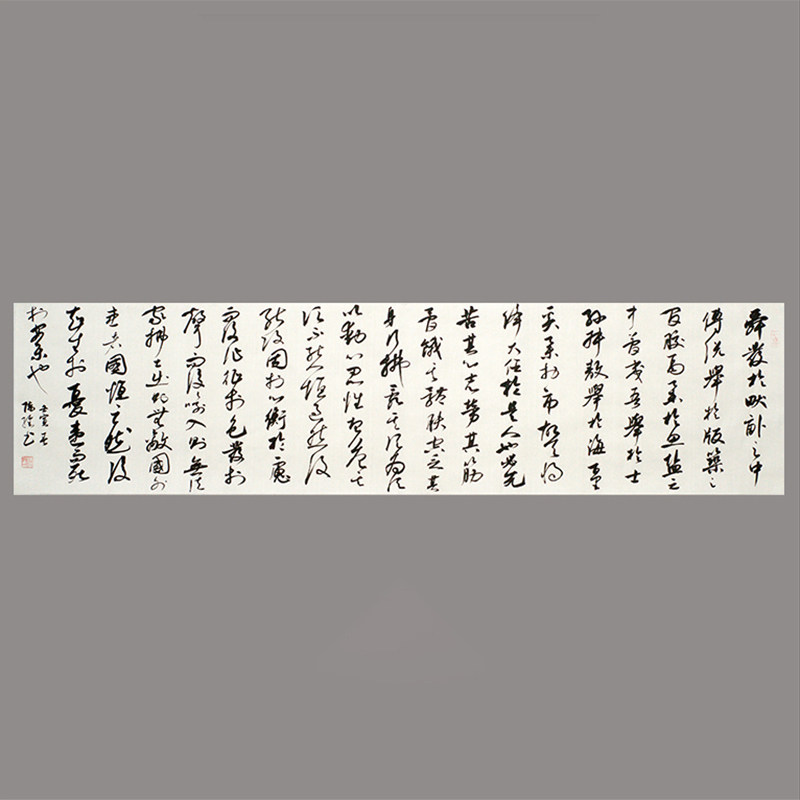 舜發於畎畝之中
傅說舉於版築之
間膠鬲舉於魚鹽之
中管夷吾舉於士
孫叔敖舉於海百里
奚舉於市故天將
降大任於是人也必先
苦其心志勞其筋
骨餓其體膚空乏其
身行拂亂其所為所
以動心忍性曾益其
所不能恒過然後
能改困於心衡於慮
而後作徵於色發於
聲而後喻入則無法
家拂士出則無敵國外
患者國恒亡然後
知生於憂患而死
於安樂也
壬寅
書